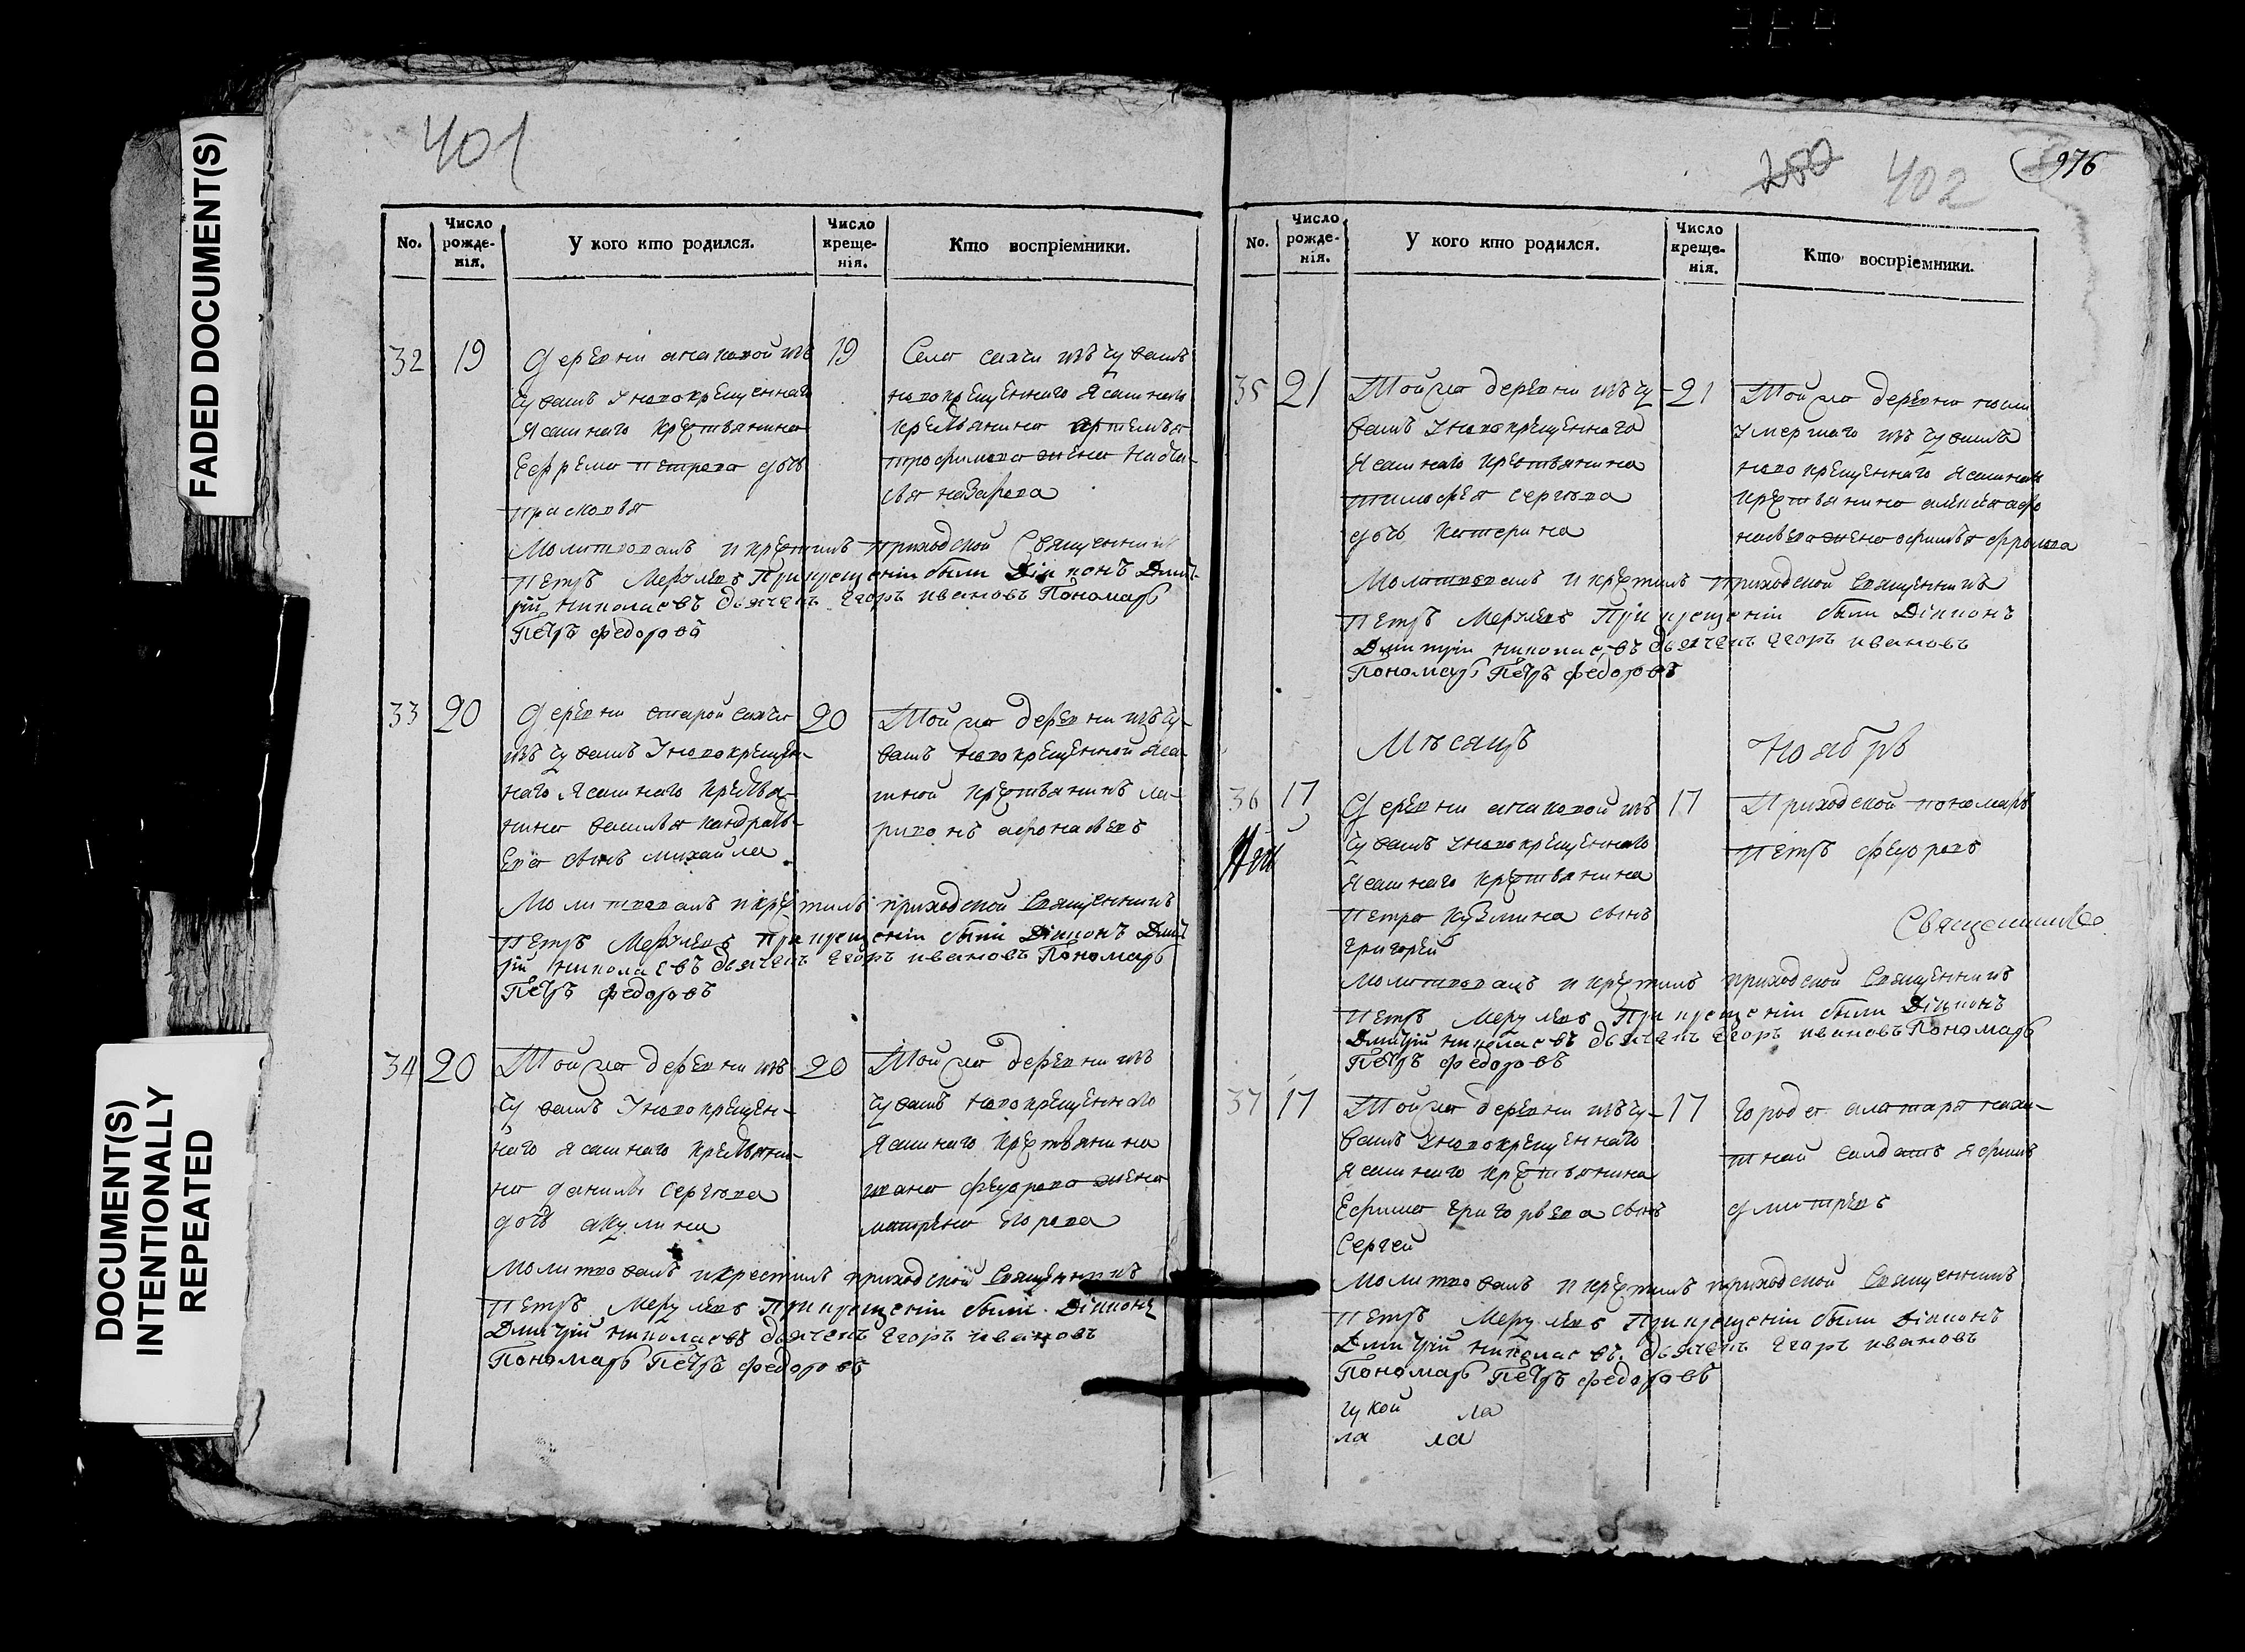 FADED DOCUMENT(S)
DOCUMENT(S)
INTENTIONALLY
REPEATED
401
No.
Число рожденія.
У кого кто родился.
Число крещенія.
Кто воспріемники.
32 19
Деревни атаковой изъ
чувашъ Iновокрещеннаго
Ясашнаго крестьянина
Ефрема петрова дочь
прасковья
19
Села сахчи изъ чувашъ
новокрещеннаго Ясашнаго
крестьянина артемья
трофимова жена наста-
сья назарова
Молитвовалъ и крестилъ приходской Священникъ
Петръ Меркулевъ При крещеніи были Діаконъ Дмит-
рій николаевъ дьячекъ Егоръ ивановъ Пономарь
Петръ федоровъ
33 20
Деревни старой сахчи
изъ чувашъ Iновокрещен-
наго Ясашнаго крестья-
нина василья кандрать-
ева сынъ михайла
20
Той же деревни изъ чу-
вашъ новокрещенной яса-
шной крестьянинъ ла-
рионъ афонасьевъ
Молитвовалъ и крестилъ приходской Священникъ
Петръ Меркулевъ При крещеніи были Діаконъ Дмит
рій николаевъ дьячекъ Егоръ ивановъ Пономарь
Петръ федоровъ
34 20
Той же деревни изъ
чувашъ Iновокрещен-
наго Ясашнаго крестьяни-
на данилы Сергеева
дочь акулина
20
Той же деревни изъ
чувашъ новокрещеннаго
Ясашнаго крестьянина
ивана федорова жена
матрена егорова
Молитвовалъ и крестилъ приходской Священникъ
Петръ Меркулевъ При крещеніи были Діаконъ
Дмитрій николаевъ дьячекъ Егоръ ивановъ
Пономарь Петръ федоровъ
250 402 976
No.
Число рожденія.
У кого кто родился.
Число крещенія.
Кто воспріемники.
35 21
Той же деревни изъ чу-
вашъ Iновокрещеннаго
Ясашнаго крестьянина
тимофея сергеева
дочь катерина
21
Той же деревни
умершаго изъ чувашъ
новокрещеннаго Ясашнаго
крестьянина алексея афо
насьева жена офимья фролова
Молитвовалъ и крестилъ приходской священникъ
Петръ Меркулевъ При крещеніи были Діаконъ
Дмитрій николаевъ дьячекъ Егоръ ивановъ
Пономарь Петръ федоровъ
Мѣсяцъ Ноябрь
36 17
Деревни атаковой изъ
чувашъ Iновокрещеннаго
Ясашнаго крестьянина
петра кузмина сынъ
григорей
17
Приходской пономарь
Петръ федоровъ
Священникъ
Молитвовалъ и крестилъ приходской Священникъ
Петръ Меркулевъ При крещеніи были Діаконъ
Дмитрій николаевъ дьячекъ Егоръ ивановъ Пономарь
Петръ федоровъ
37 17
Той же деревни изъ чу-
вашъ Iновокрещеннаго
Ясашнаго крестьянина
Ефима григорьева сынъ
Сергей
17
города алатаря
салдатъ Яфимъ
дмитревъ
Молитвовалъ и крестилъ приходской Священникъ
Петръ Меркулевъ При крещеніи были Діаконъ
Дмитрій николаевъ дьячекъ Егоръ ивановъ
Пономарь Петръ федоровъ